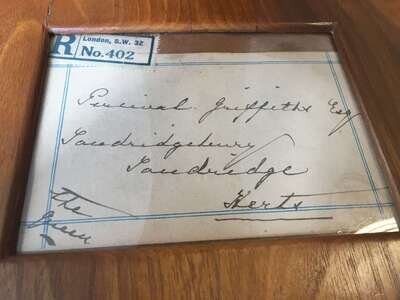 R London, S.W. 32
No. 402
Percival Griffiths Esq
Sandridgebury
Sandridge
Herts
The
Green